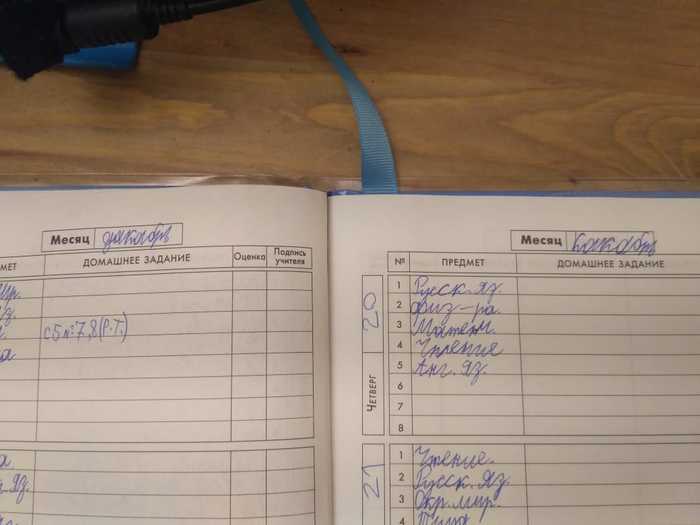 Месяц декабрь
МЕТ ДОМАШНЕЕ ЗАДАНИЕ Оценка Подпись учителя
с5 №7,8 (Р.Т.)
яз.
Месяц какабрь
№ ПРЕДМЕТ ДОМАШНЕЕ ЗАДАНИЕ
ЧЕТВЕРГ 20
1 Русск. яз.
2 Физ-ра.
3 Матем.
4 Чтение
5 Анг. яз.
6
7
8
21
1 Чтение.
2 Русск. яз.
3 Окр. мир.
4